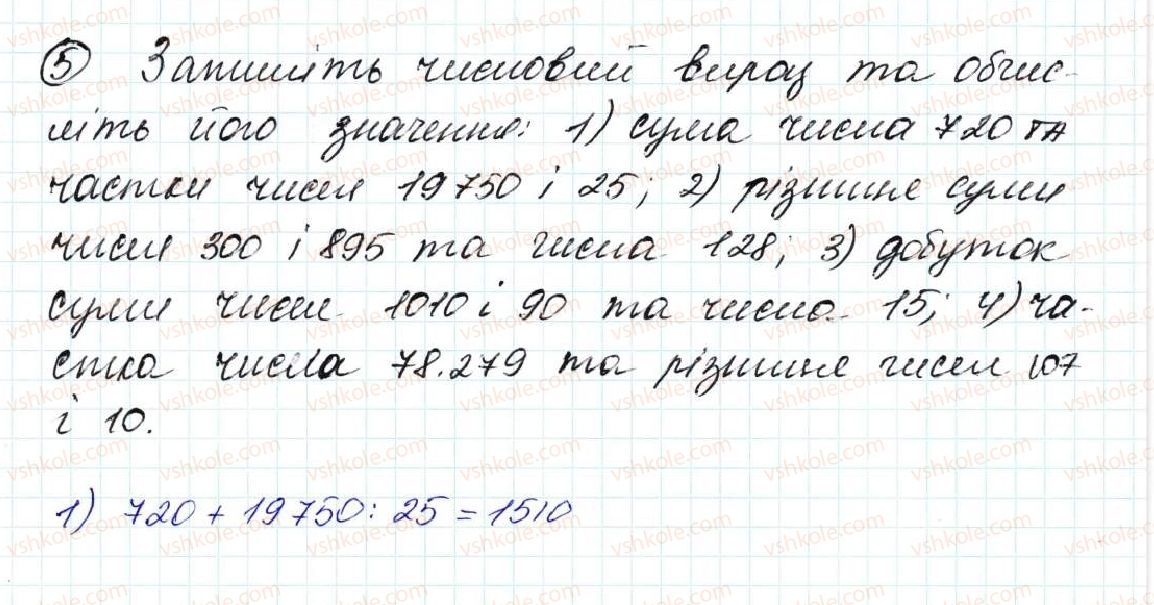 5 Запишіть числовий вираз та обчис-
літь його значення: 1) сума числа 720 та
частки чисел 19 750 і 25; 2) різниця суми
чисел 300 і 895 та числа 128; 3) добуток
суми чисел 1010 і 90 та числа 15; 4) ча-
стка числа 78.279 та різниця чисел 107
і 10.
1) 720 + 19 750 : 25 = 1510
vshkole.com